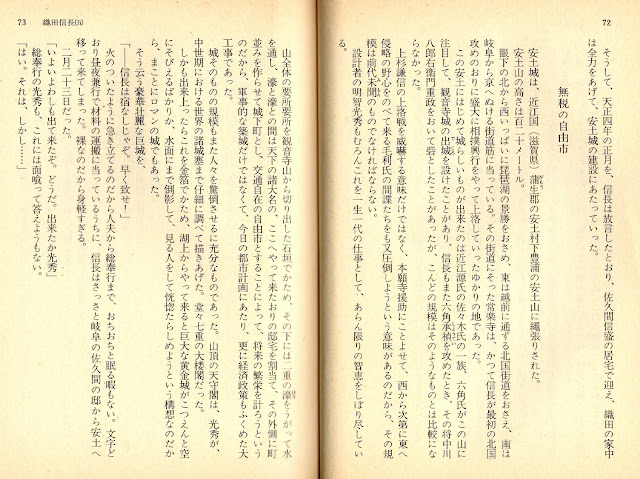 72
そうして、天正四年の正月を、信長は放言したとおり、佐久間信盛の居宅で迎え、織田の家中
は全力をあげて、安土城の建設にあたっていった。
無税の自由市
安土城は、近江国(滋賀県)蒲生郡の安土村下豊浦の安土山に縄張りされた。
安土山の高さは百二十メートル。
眼下の北から西いっぱいに琵琶湖の景勝をおさめ、東は越前に通ずる北国街道をおさえ、南は
岐阜から京へぬける街道筋に当っている。その街道にそった常楽寺は、かつて信長が最初の北国
攻めのおりに盛大に相撲興行をやって上洛していったゆかりの地であった。
この安土にはじめて城らしいものが出来たのは近江源氏の佐々木氏の一族、六角氏がこの山に
注目して、観音寺城の出城を設けたことがあり、信長もまた六角承禎を攻めたとき、その将中川
八郎右衛門重政をおいて砦としたことがあったが、こんどの規模はそのようなものとは比較にな
らなかった。
上杉謙信の上洛戦を威嚇する意味だけではなく、本願寺援助にことよせて、西から次第に東へ
侵略の野心をのべて来る毛利氏の間諜たちをも又圧倒しようという意味があるのだから、その規
模は前代未聞のものでなければならない。
設計者の明智光秀もむろんこれを一生一代の仕事として、あらん限りの智恵をしぼり尽してい
る。
73 織田信長㈤
山全体の要所要所を観音寺山から切り出した石垣でかため、その下には二重の濠をうがって水
を通し、濠と濠との間は天下の諸大名の、ここへやって来たおりの邸宅を割当て、その外側に町
並みを作らせて城下町とし、交通自在の自由市とすることによって、将来の繁栄を計ろうという
のだから、軍事的な築城だけではなくて、今日の都市計画にあたり、更に経済政策もふくめた大
工事であった。
城そのものの規模もまた人々を驚倒させるに充分なものであった。山頂の天守閣は、光秀が、
中世期における世界の諸城塞まで仔細に調べて描きあげた、堂々七重の大楼閣だった。
しかも出来上ったらこれを金箔でかため、湖上からやって来ると巨大な黄金城がこつえんと空
にそびえるばかりか、水面にまで倒影して、見る人をして恍惚たらしめようという構想なのだか
ら、まことにロマンの城でもあった。
そう云う豪華壮麗な巨城を、
「――信長は宿なしじゃぞ。早く致せ!」
火のついたように急き立てるのだから人夫から総奉行まで、おちおちと眠る暇もない。文字ど
おり昼夜兼行で材料の運搬に当っているうちに、信長はさっさと岐阜の佐久間の邸から安土へ
移って来てしまった。裸なのだから身軽すぎる。
二月二十三日だった。
「いよいよわしも出て来たぞ。どうだ。出来たか光秀」
総奉行の光秀も、これには面喰って答えようもない。
「はい。それは、しかし……」